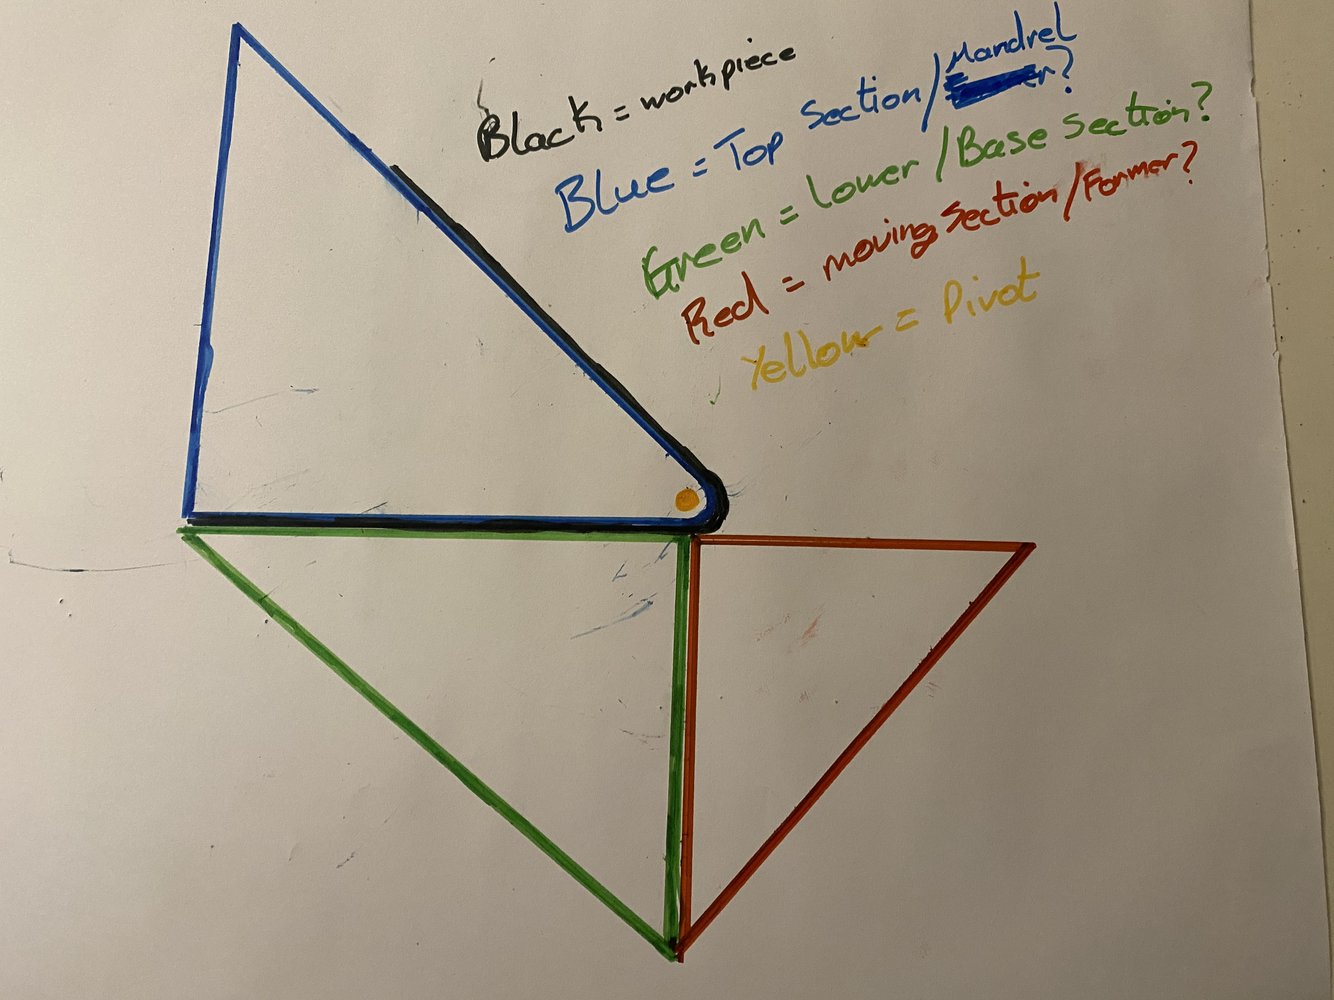 Black = workpiece
Blue = Top Section/Mandrel
r?
Green = Lower/Base section?
Red = moving section/Former?
Yellow = Pivot